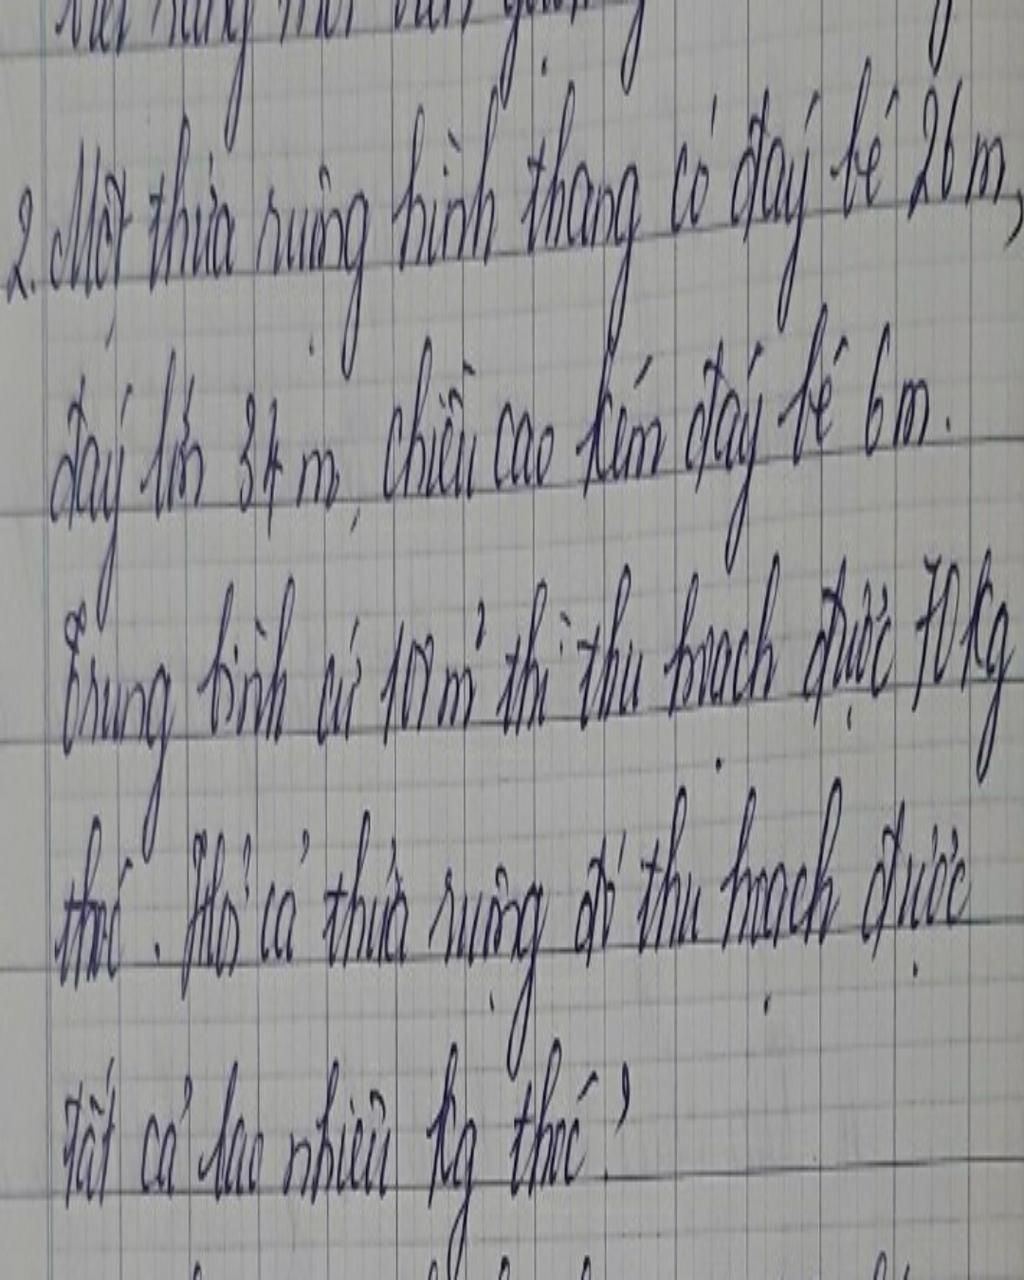 2. Một thửa ruộng hình thang có đáy bé 26 m,
đáy lớn 34 m, chiều cao kém đáy bé 6 m.
Trung bình cứ 10 m² thì thu hoạch được 70 kg
thóc. Hỏi cả thửa ruộng đó thu hoạch được
tất cả bao nhiêu kg thóc?